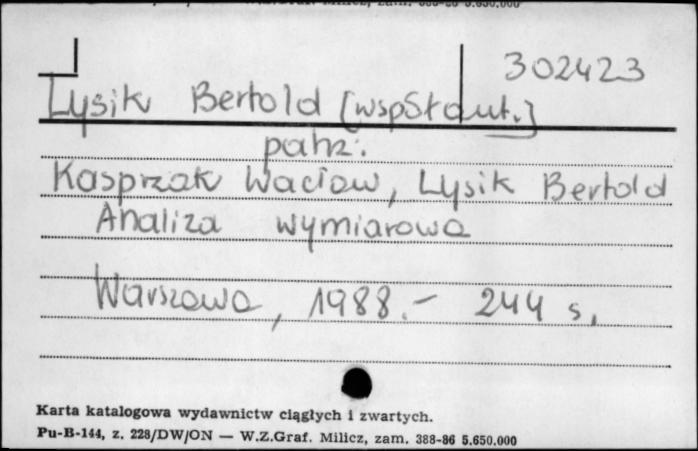 302423
Lysik Bertold [współ aut.]
patrz:
Kasprzak Wacław, Lysik Bertold
Analiza wymiarowa
Warszawa, 1988.- 244 s.
Karta katalogowa wydawnictw ciągłych i zwartych.
Pu-B-144, z. 228/DW/ON — W.Z.Graf. Milicz, zam. 388-86 5.650.000